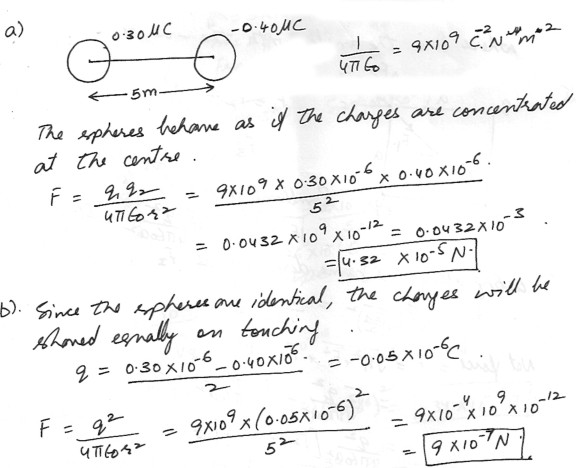 a) 0.30 μC -0.40 μC 1/4πε₀ = 9×10⁹ C⁻² N m²
5m
The spheres behave as if the charges are concentrated
at the centre.
F = q₁q₂/4πε₀r² = 9×10⁹ × 0.30×10⁻⁶ × 0.40×10⁻⁶/5²
= 0.0432 × 10⁹ × 10⁻¹² = 0.0432×10⁻³
= 4.32 × 10⁻⁵ N.
b). Since the spheres are identical, the charges will be
shared equally on touching.
q = 0.30×10⁻⁶ - 0.40×10⁻⁶/2 = -0.05×10⁻⁶C.
F = q²/4πε₀r² = 9×10⁹ × (0.05×10⁻⁶)²/5² = 9×10⁻⁴ × 10⁹ × 10⁻¹²
= 9×10⁻⁷ N.